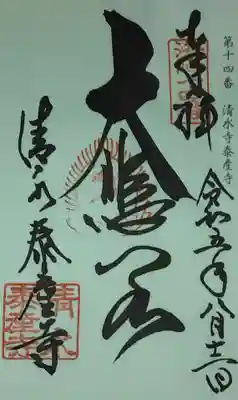 第十四番 清水寺泰産寺
奉拝
令和五年八月十二日
大悲閣
清水泰産寺